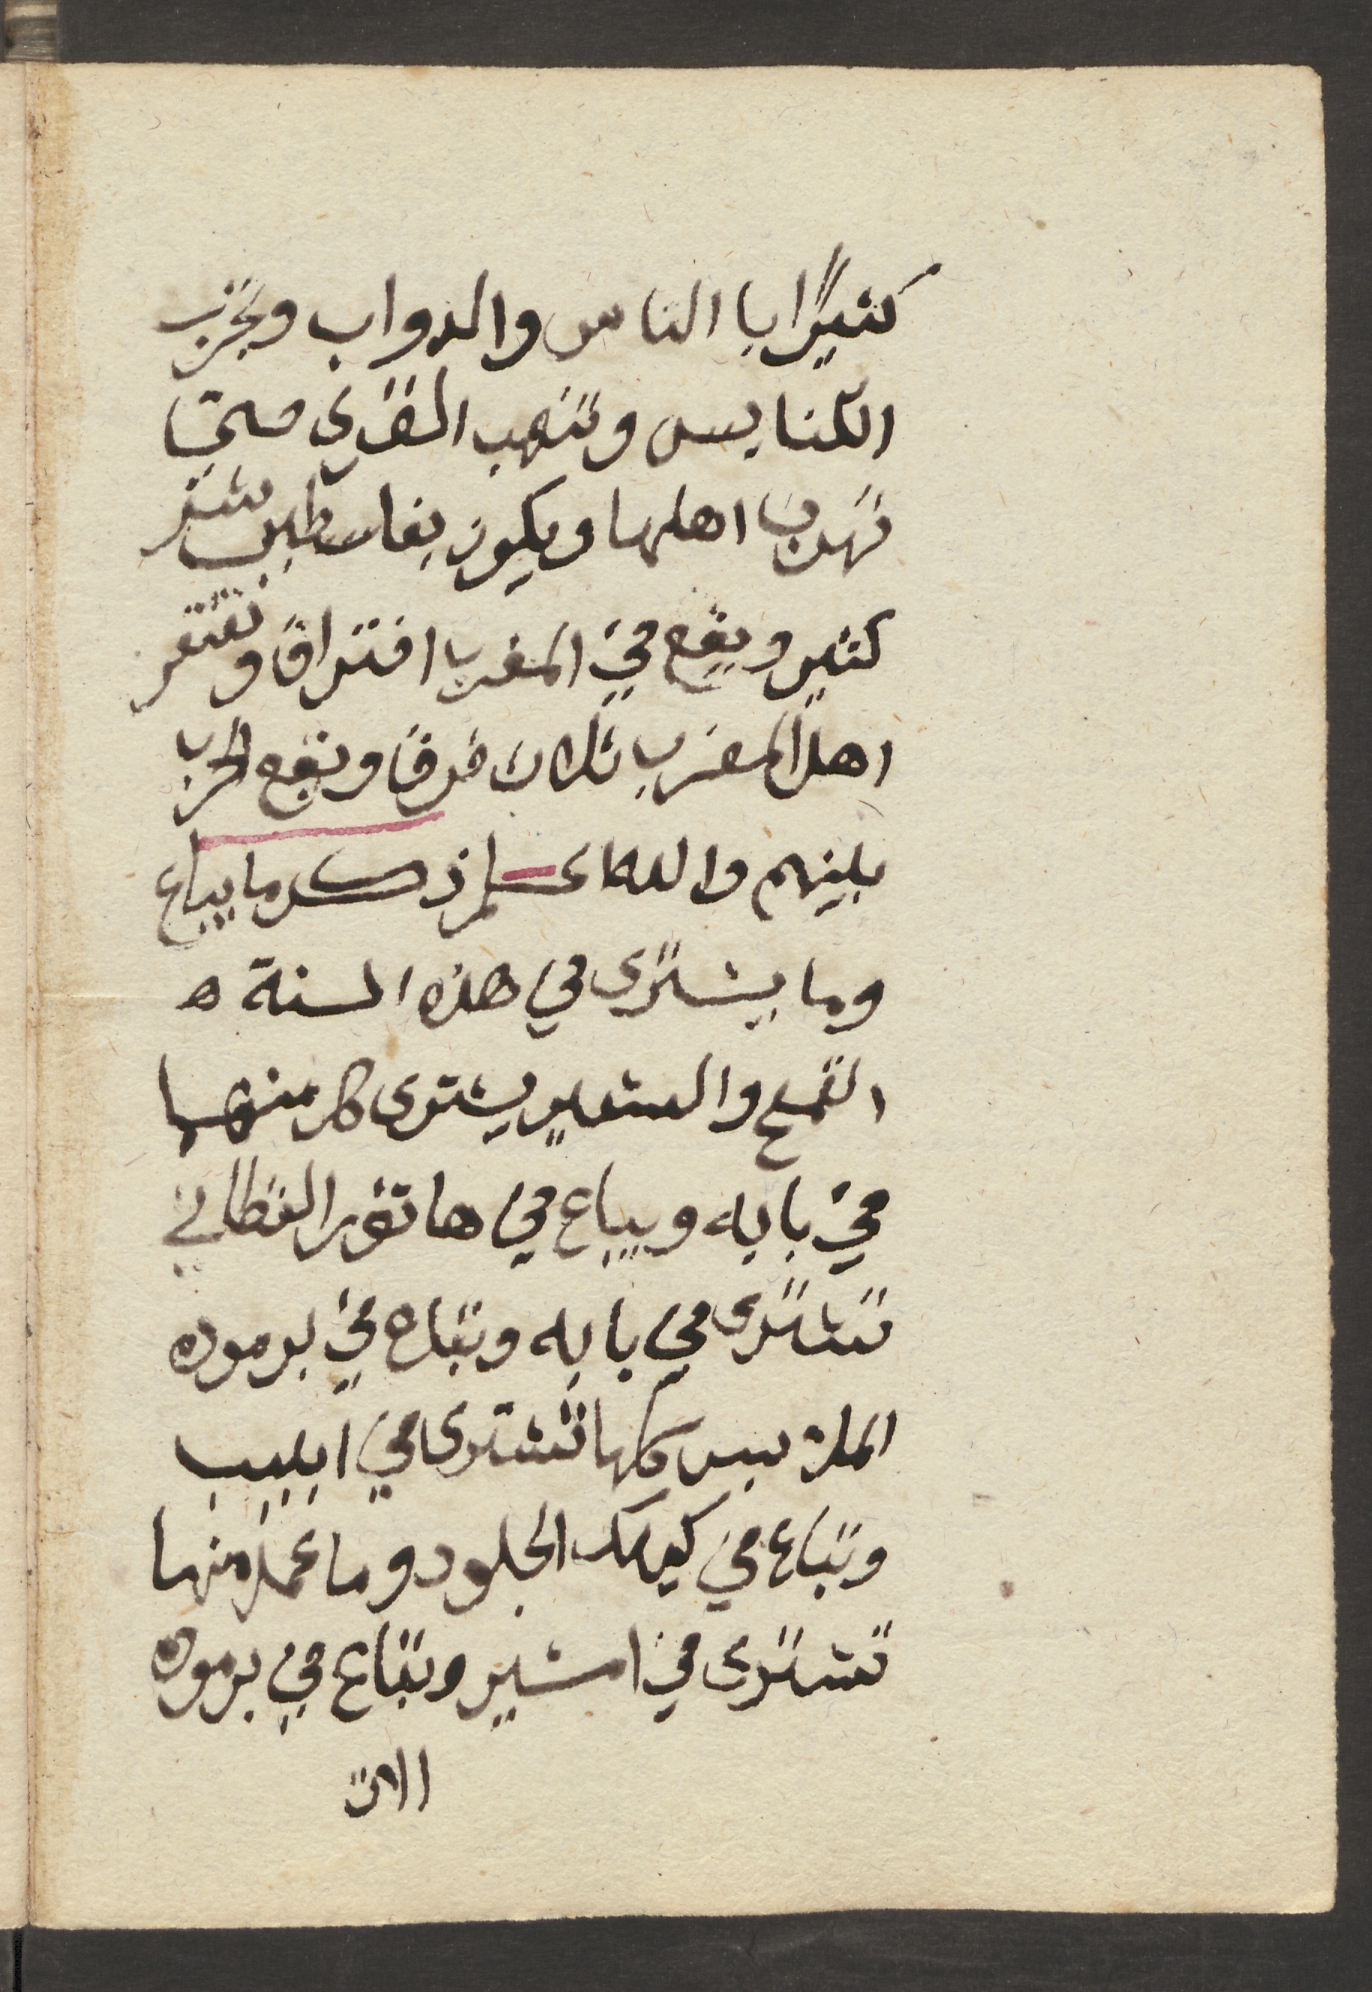 كثيرًا بالناس والدواب وتخرب
الكنايس وتنهب القرى حتى
تهرب اهلها ويكون بفلسطين شر
كثير ويقع في المغرب افتراق وتفتقر
اهل المغرب ثلاث فرقا وتقع الحرب
بينهم والله اعلم ذكر ما يباع
وما يشترى في هذه السنة ه
القمح والشعير يشترى كل منهما
في بابه ويباع في هاتور القطاني
تشترى في بابه وتباع في برموده
الملابس كلها تشترى في ابيب
وتباع في كيهك الجلود وما عمل منها
تشترى في امشير وتباع في برموده